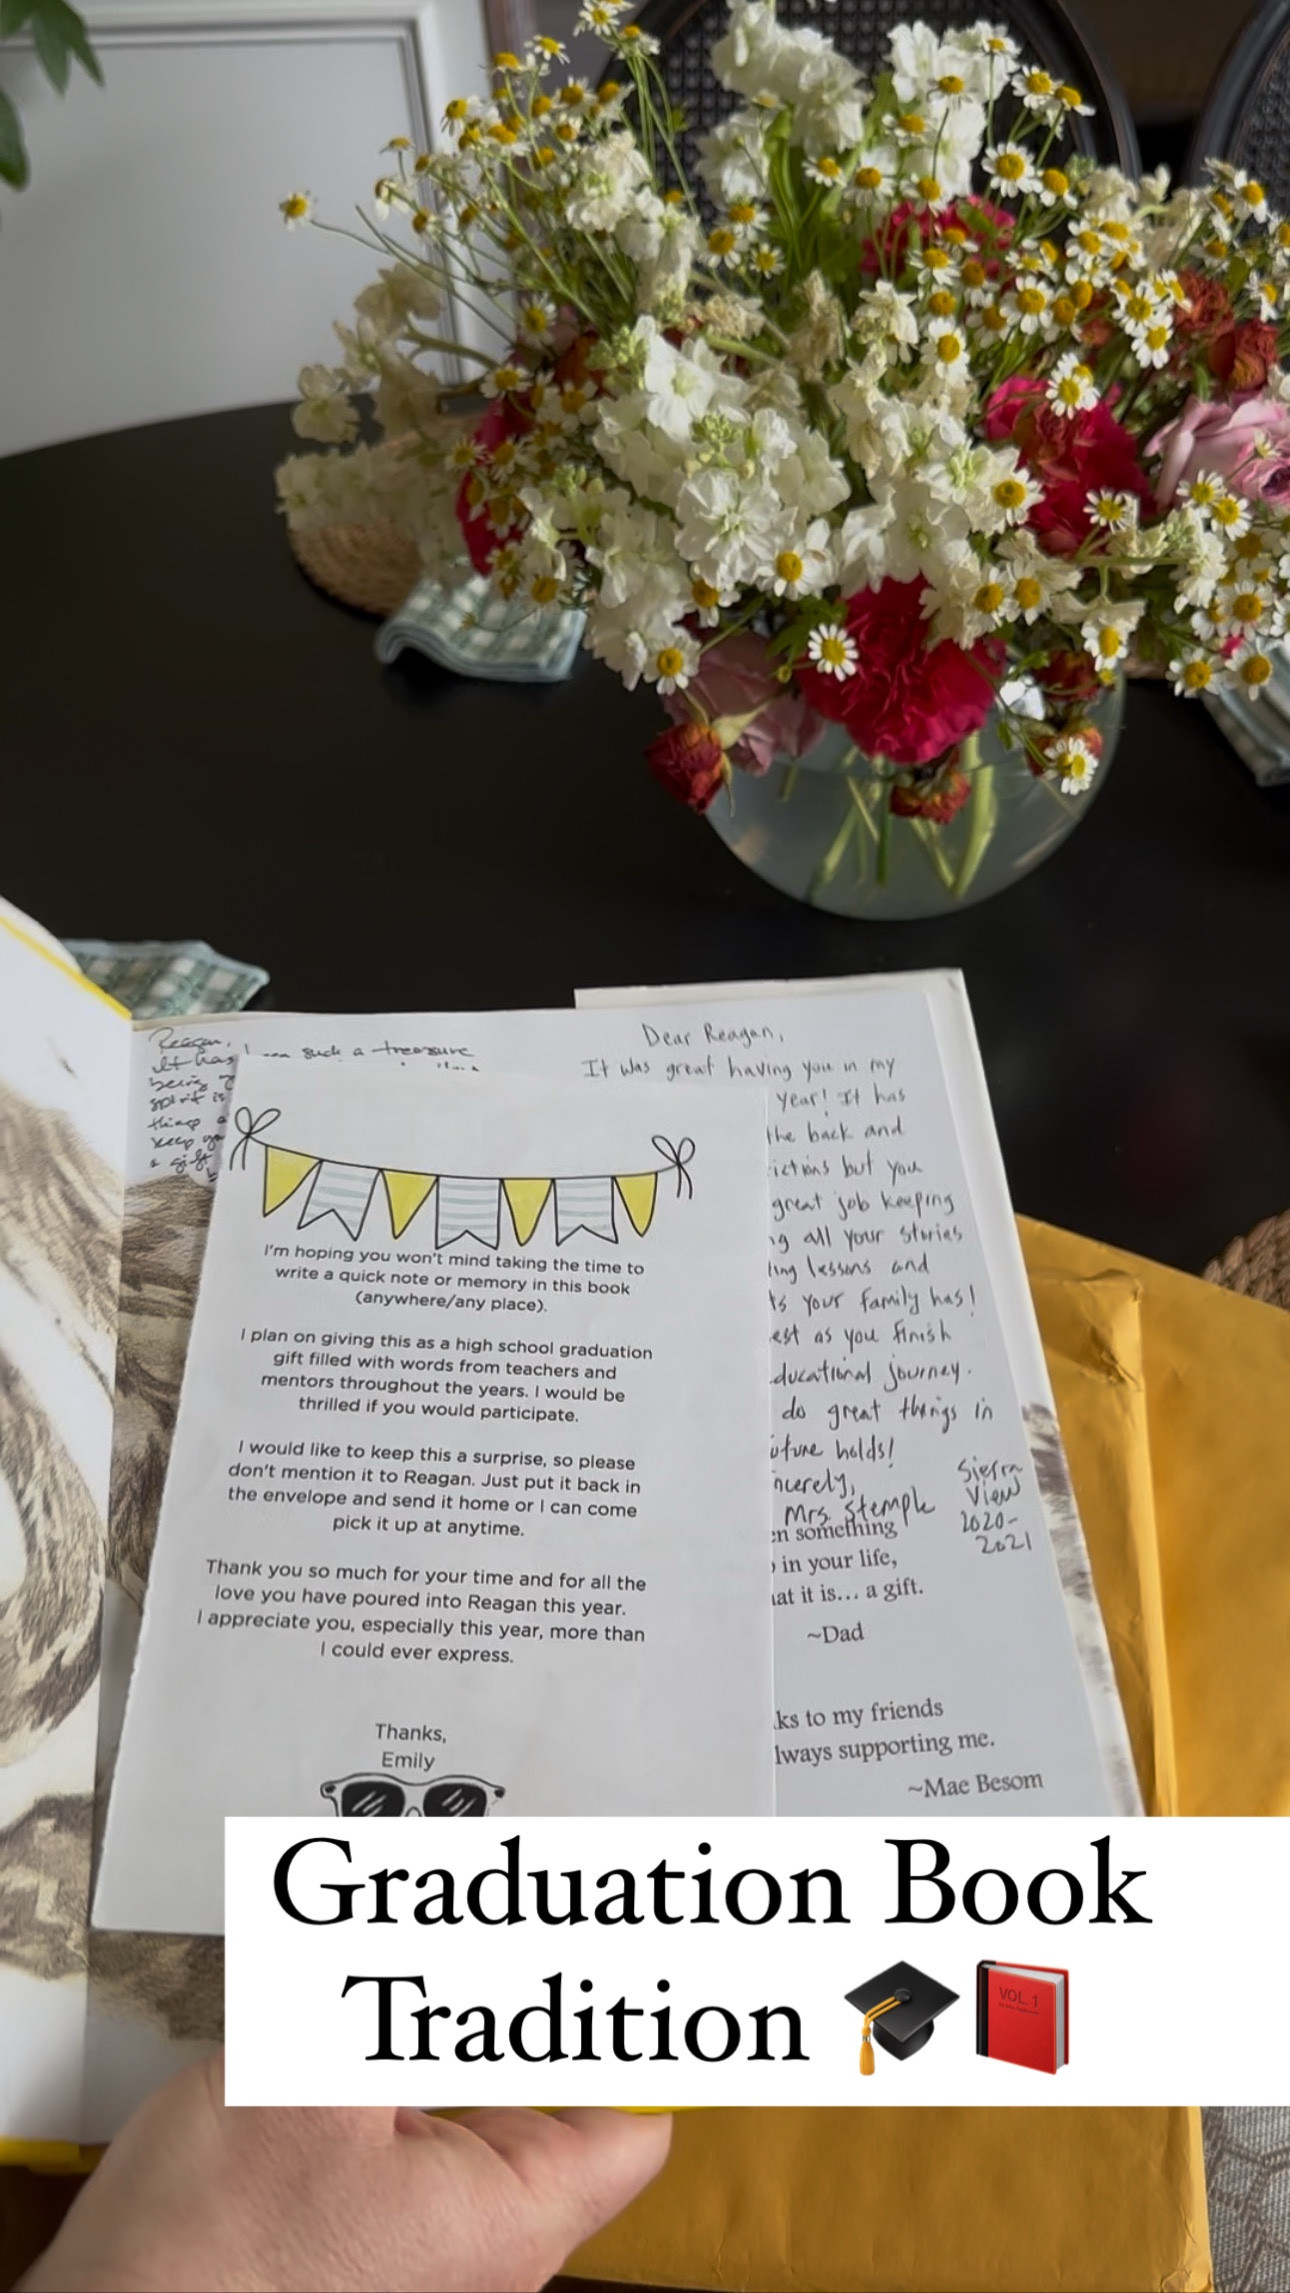 Reagan,
It has
being
spirit is
things a
keep yo
a gift
such a treasure
Dear Reagan,
It was great having you in my
year! It has
the back and
ictions but you
great job keeping
ng all your stories
ling lessons and
ts your family has!
est as you finish
ducational journey.
do great things in
uture holds!
ncerely,
Mrs. Stemple
Sierra
View
2020-
2021
I'm hoping you won't mind taking the time to
write a quick note or memory in this book
(anywhere/any place).
I plan on giving this as a high school graduation
gift filled with words from teachers and
mentors throughout the years. I would be
thrilled if you would participate.
I would like to keep this a surprise, so please
don't mention it to Reagan. Just put it back in
the envelope and send it home or I can come
pick it up at anytime.
Thank you so much for your time and for all the
love you have poured into Reagan this year.
I appreciate you, especially this year, more than
I could ever express.
Thanks,
Emily
en something
in your life,
at it is... a gift.
~Dad
ks to my friends
lways supporting me.
~Mae Besom
Graduation Book
Tradition 🎓📕
VOL. 1